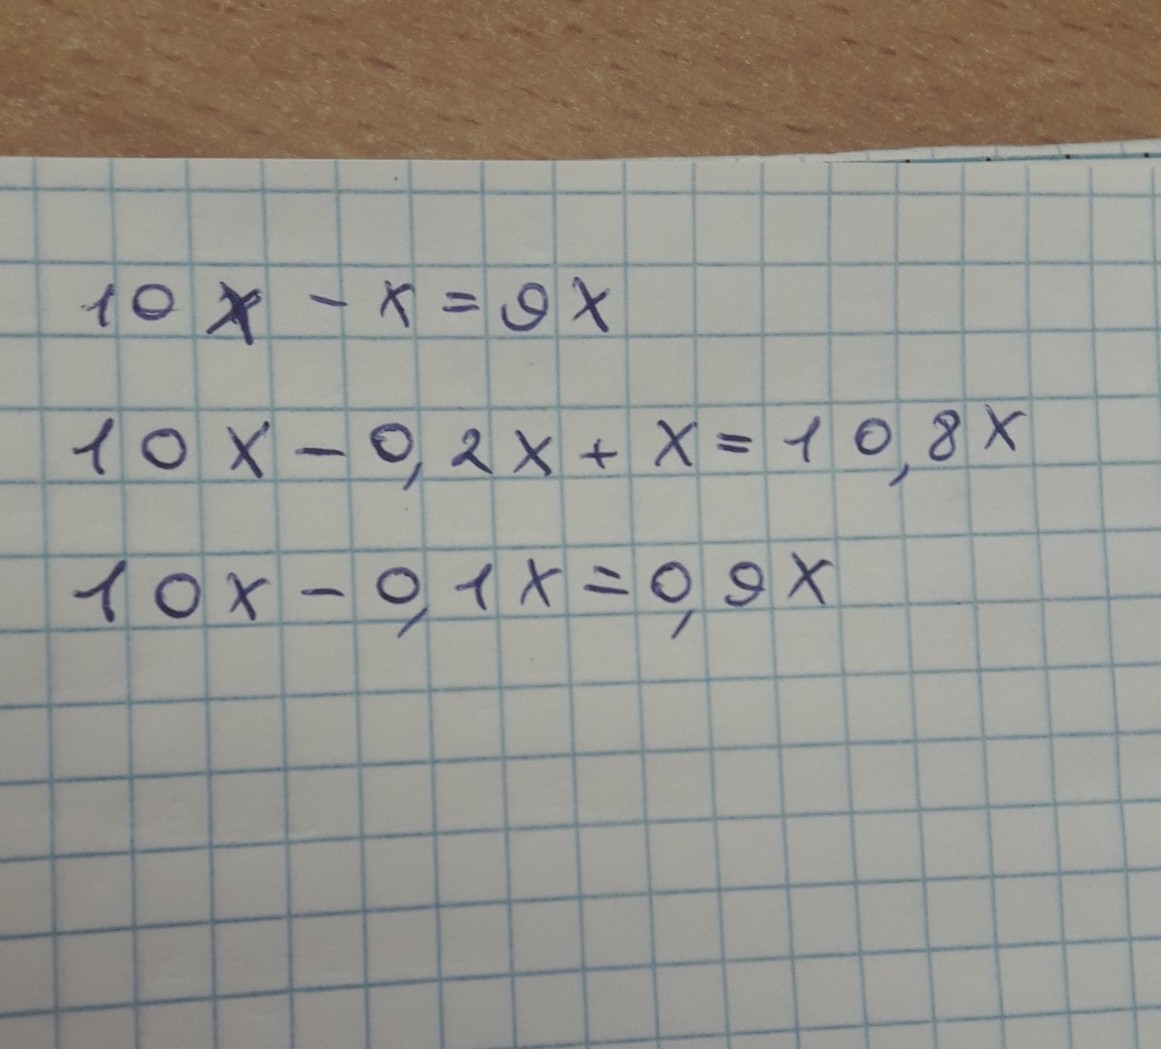 10x - x = 9x
10x - 0,2x + x = 10,8x
10x - 0,1x = 0,9x